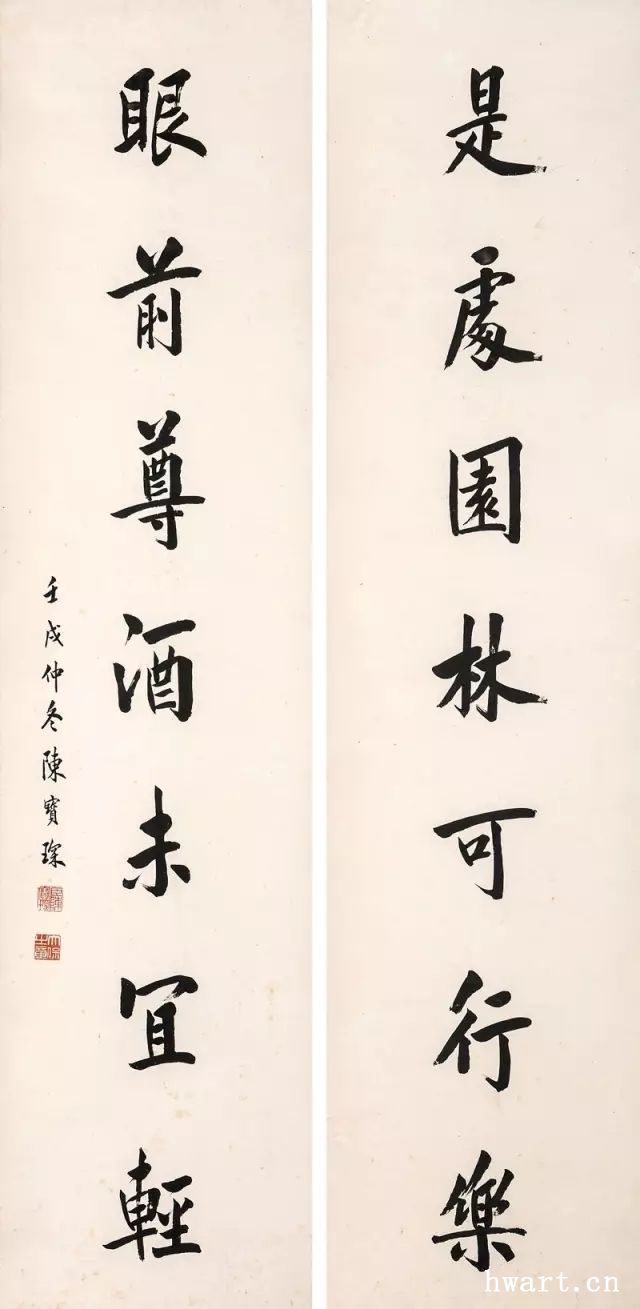 是處園林可行樂
眼前尊酒未冝輕
壬戌仲冬陳寶琛
hwart.cn